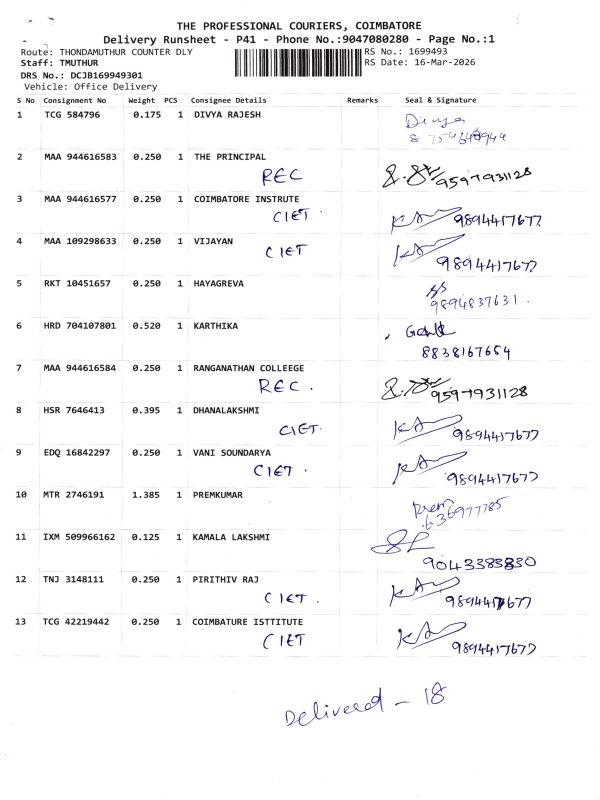 THE PROFESSIONAL COURIERS, COIMBATORE
Delivery Runsheet - P41 - Phone No.:9047080280 - Page No.:1
Route: THONDAMUTHUR COUNTER DLY RS No.: 1699493
Staff: TMUTHUR RS Date: 16-Mar-2026
DRS No.: DCJB169949301
Vehicle: Office Delivery
S No Consignment No Weight PCS Consignee Details Remarks Seal & Signature
1 TCG 584796 0.175 1 DIVYA RAJESH Divya
2 MAA 944616583 0.250 1 THE PRINCIPAL
REC 9597931128
3 MAA 944616577 0.250 1 COIMBATORE INSTRUTE
CIET 9894417677
4 MAA 109298633 0.250 1 VIJAYAN
CIET 9894417677
5 RKT 10451657 0.250 1 HAYAGREVA
9894837631
6 HRD 704107801 0.520 1 KARTHIKA
8838167664
7 MAA 944616584 0.250 1 RANGANATHAN COLLEEGE
REC . 9597931128
8 HSR 7646413 0.395 1 DHANALAKSHMI
CIET. 9894417677
9 EDQ 16842297 0.250 1 VANI SOUNDARYA
CIET . 9894417677
10 MTR 2746191 1.385 1 PREMKUMAR
Prem
11 IXM 509966162 0.125 1 KAMALA LAKSHMI
9043383830
12 TNJ 3148111 0.250 1 PIRITHIV RAJ
CIET . 9894417677
13 TCG 42219442 0.250 1 COIMBATURE ISTTITUTE
CIET 9894417677
Delivered - 18